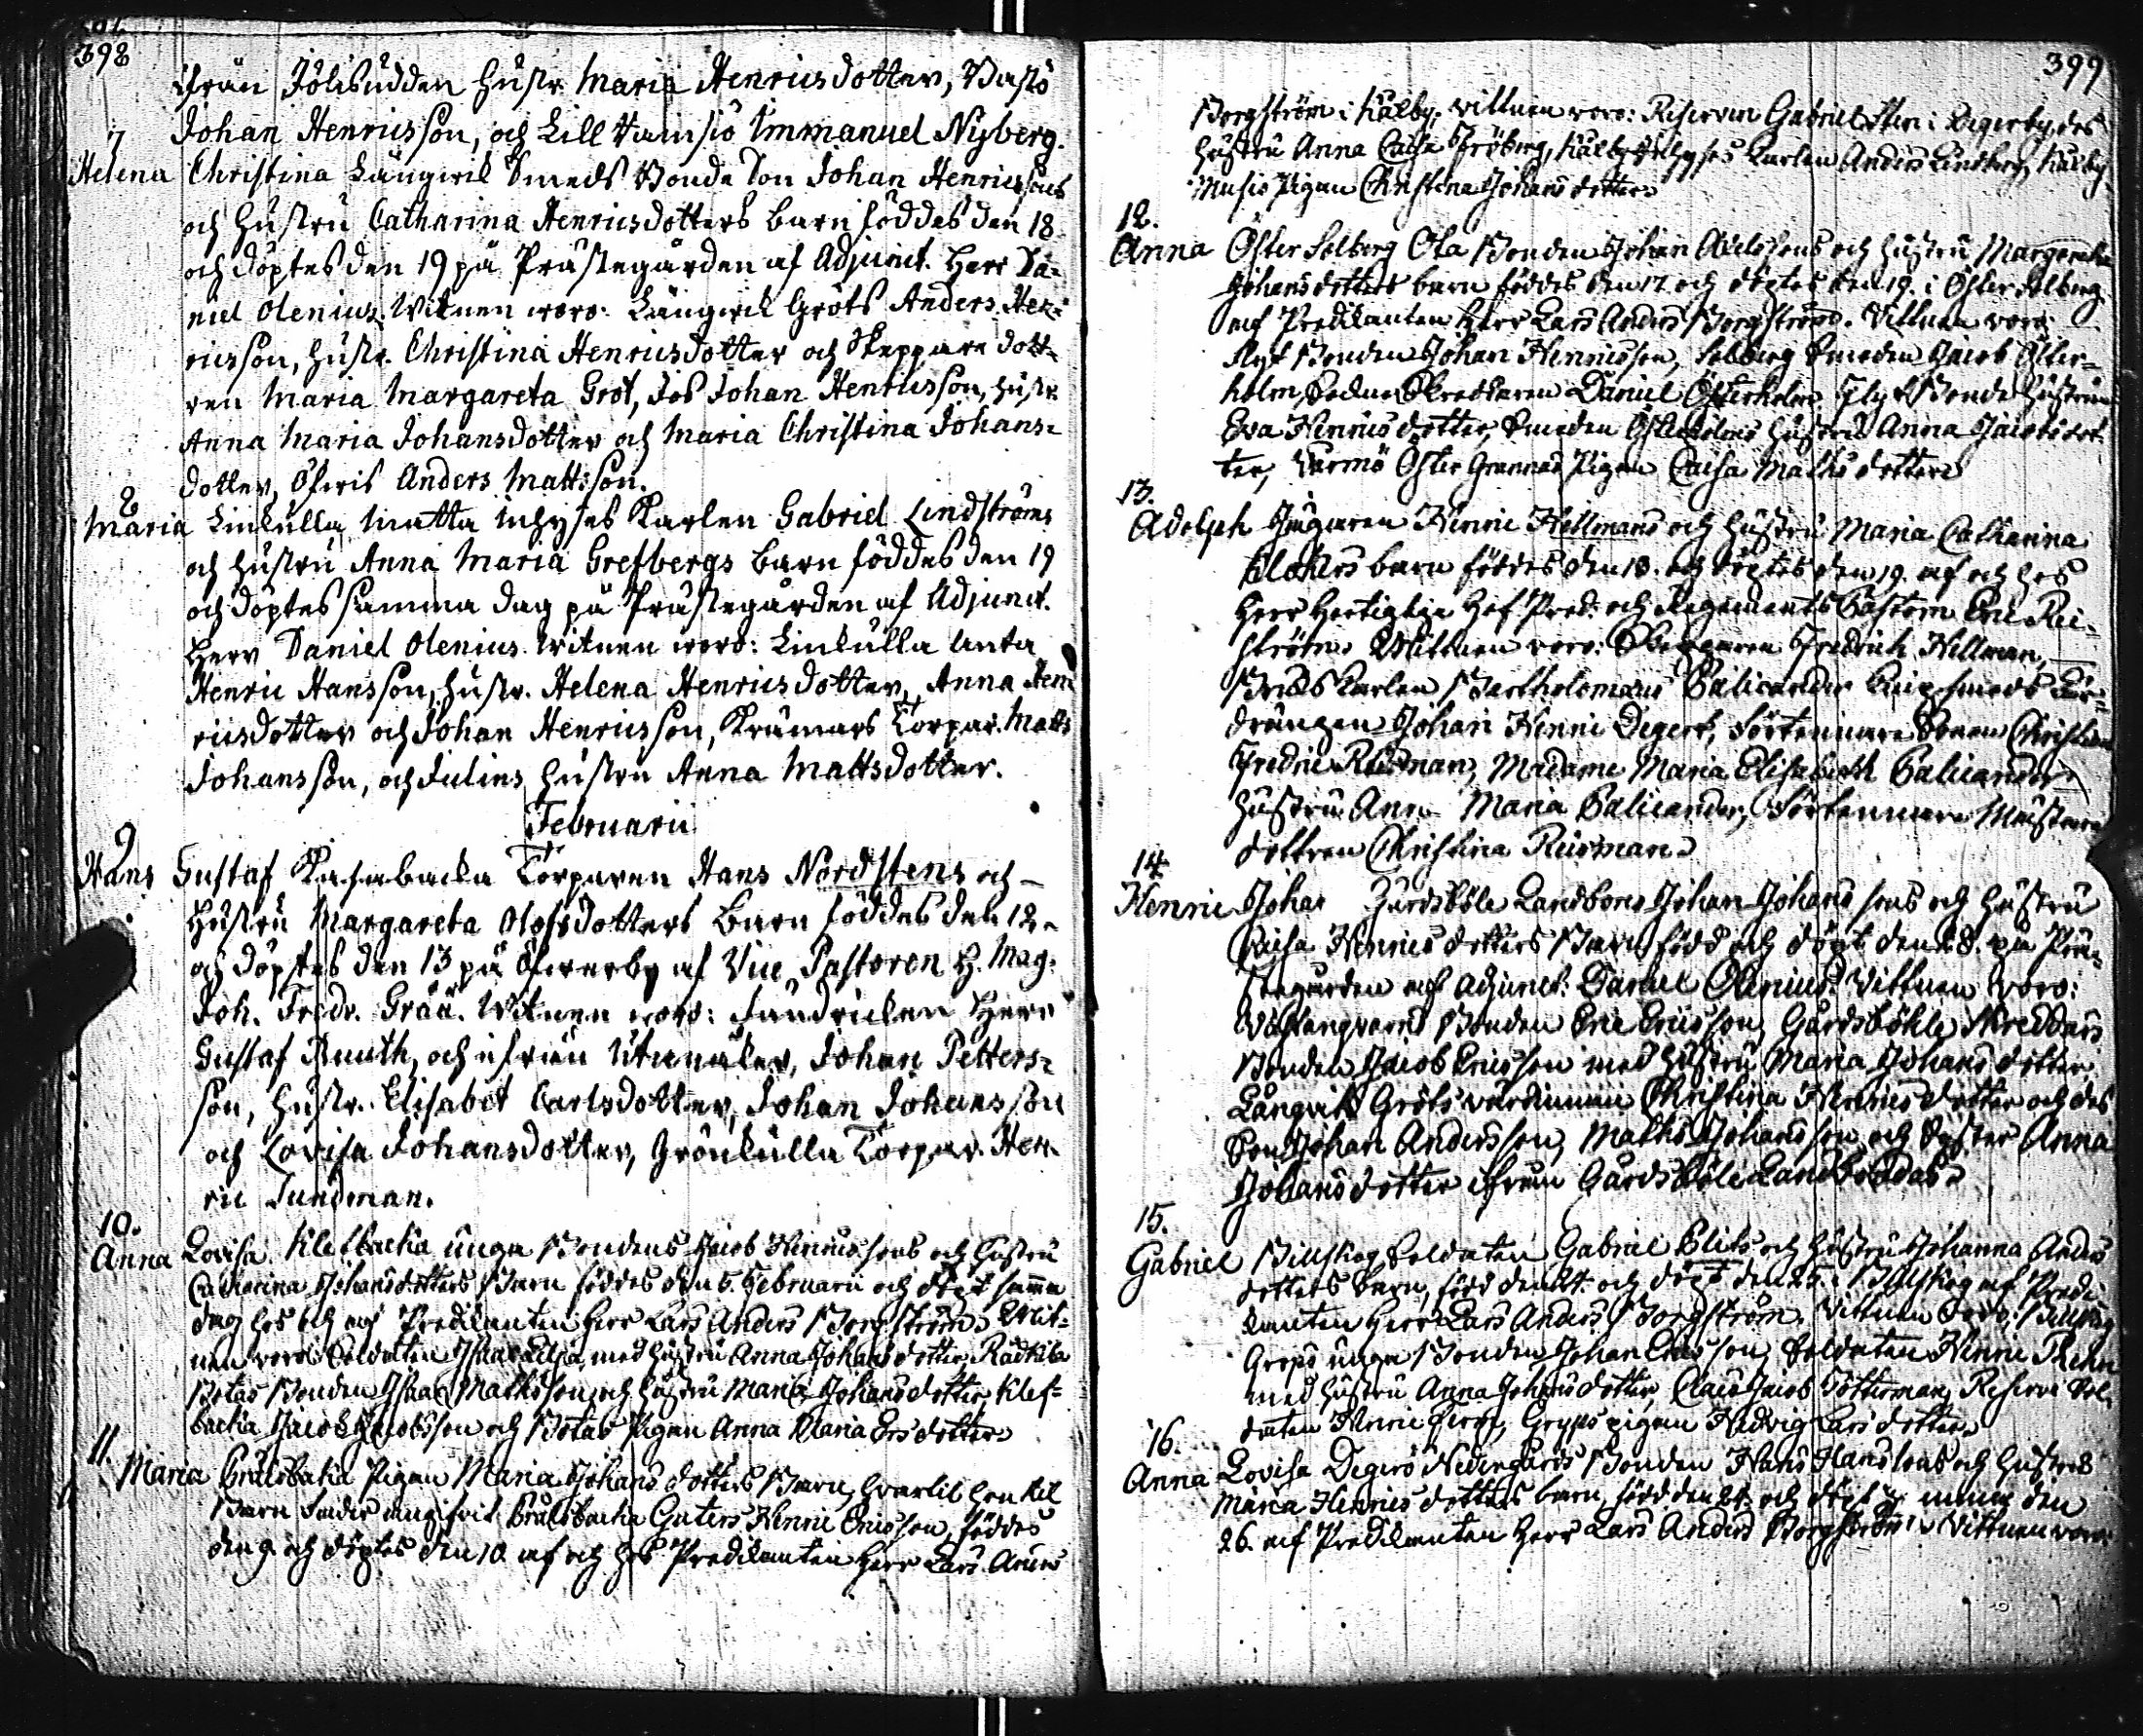 398
ifrån Jölisudden hustr. Maria Henricsdotter, Wastö
Johan Henricsson, och Lill Hamsiö Immanuel Nyberg.
7
Helena Christina Långwik Smeds Bonde Son Johan Henricssons
och Hustru Catharina Henricsdotters barn föddes den 18
och döptes den 19 på Prästegården af Adjunct. Herr Da-
niel Olenius. Witnen woro: Långwik Gröts Anders Hen-
ricsson, hustr. Christina Henricsdotter och Skeppare dott-
ren Maria Margareta Gröt, Jos Johan Henricsson, hustr.
Anna Maria Johansdotter och Maria Christina Johans-
dotter, Öfwis Anders Mattsson.
8
Maria Linkulla Matta Inhyses Karlen Gabriel Lindströms
och hustru Anna Maria Grefbergs barn föddes den 19
och döptes samma dag på Prästegården af Adjunct.
Herr Daniel Olenius. Witnen woro: Linkulla Anta
Henric Hansson, hustr. Helena Henricsdotter, Anna Hen-
ricsdotter och Johan Henricsson, Kramars Torpar. Matts
Johansson, och Julins hustru Anna Mattsdotter.
Februarii
9
Hans Gustaf Kasabacka Torparen Hans Nordstens och
Hustru Margareta Olofsdotters Barn föddes den 12
och döptes den 13 på Öfwerby af Vice Pastoren H. Mag.
Joh. Fredr. Gråå. Witnen woro: Fändricken Herr
Gustaf Ruuth, och ifrån Utnäker, Johan Petters-
son, hustr. Elisabet Carlsdotter, Johan Johansson
och Lovisa Johansdotter, Grönkulla Torpar. Hen-
ric Sundman.
10.
Anna Lovisa Klefbacka unga Bondens Jacob Henricssons och hustru
Catharina Johansdotters Barn föddes den 5. Februarii och döpt samma
dag hos och af Predikanten Herr Lars Anders Borgström. Witt-
nen voro: Soldaten Isaac Lilja, med hustru Anna Johansdotter, Rådkila
Botas Bonden Isaac Mathsson och hustru Maria Johansdotter, Klef-
backa Jacob Jacobsson och Botas Pigan Anna Maria Ersdotter
11.
Maria Brusbacka Pigan Maria Johansdotters Barn, hvartil hon til
Barn fader angifvit Brusbacka Gusters Henric Ericsson, föddes
den 9. och döptes den 10. af och hos Predikanten Herr Lars Anders
399
Borgström i Kälby. Vittnen voro: Reserven Gabriel Sten i Degerby, des
hustru Anna Caisa Fröberg, Kälby Inhyses Karlen Anders Lindberg, Kälby
Musis Pigan Christina Johansdotter
12.
Anna Öster Solberg Ola Bonden Johan Axelssons och hustru Margaretha
Johansdotters barn föddes den 17. och döptes den 19. i Öster Solberg
af Predikanten Herr Lars Anders Borgström. Vittnen voro:
Flyt Bonden Johan Henricsson, Solberg Smeden Jacob Öster-
holm, Sockne Skreddaren Daniel Österholm, Flyt Bonde hustrun
Eva Henricsdotter, Smeden Österholms hustru Anna Jacobsdot-
ter, Värmö Öster Grannas Pigan Caisa Mathsdotter
13.
Adolph Jägaren Henric Hellmans och hustru Maria Catharina
barn föddes den 18. och döptes den 19. af och hos
Herr Hertiglige Hof Pred. och Regements Pastorn Eric Rei-
ström. Vittnen voro: Fredrich Hellman,
Bruks Karlen Bartholomæus Palicander
drängen Johan Henric Degert, Förtennare Sonen Christian
Fredric Rusman, Madame Maria Elisabeth Palicander
hustru Anna Maria Palicander, Förtennare Mästare
dottren Christina Rusman
14.
Henric Johan Gårdsböle Landbons Johan Johanssons och hustru
Caisa Henricsdotters Barn född och döpt den 28. på Prä-
stegården af Adjunct: Daniel Olenius. Vittnen voro:
Västanqvarns Bonden Eric Ericsson, Gårdsböhle Skreddars
Bonden Jacob Ericsson med hustru Maria Johansdotter,
Långviks Gröts värdinnan Christina Henricsdotter och des
Son Johan Andersson, Maths Johansson och syster Anna
Johansdotter ifrån Gårdsböle Landboddas
15.
Gabriel Billskog Soldaten Gabriel Blits och hustru Johanna Anders
dotters barn, född den 24. och döpt den 25. i Billskog af Predi-
kanten Herr Lars Anders Borgström. Vittnen voro: Billskog
Grops unga Bonden Johan Ericsson, Soldaten Henric Rehn
med hustru Anna Johansdotter, Claes Jacob Götterman, Reserve Sol-
daten Henric, Grops pigan Hedvig Larsdotter
16.
Anna Lovisa Degerö Nedergårds Bonden Hans Hanssons och hustrus
Maria Henricsdotters barn, född den 24. och döpt den
26. af Predikanten Herr Lars Anders Borgström. Vittnen voro: